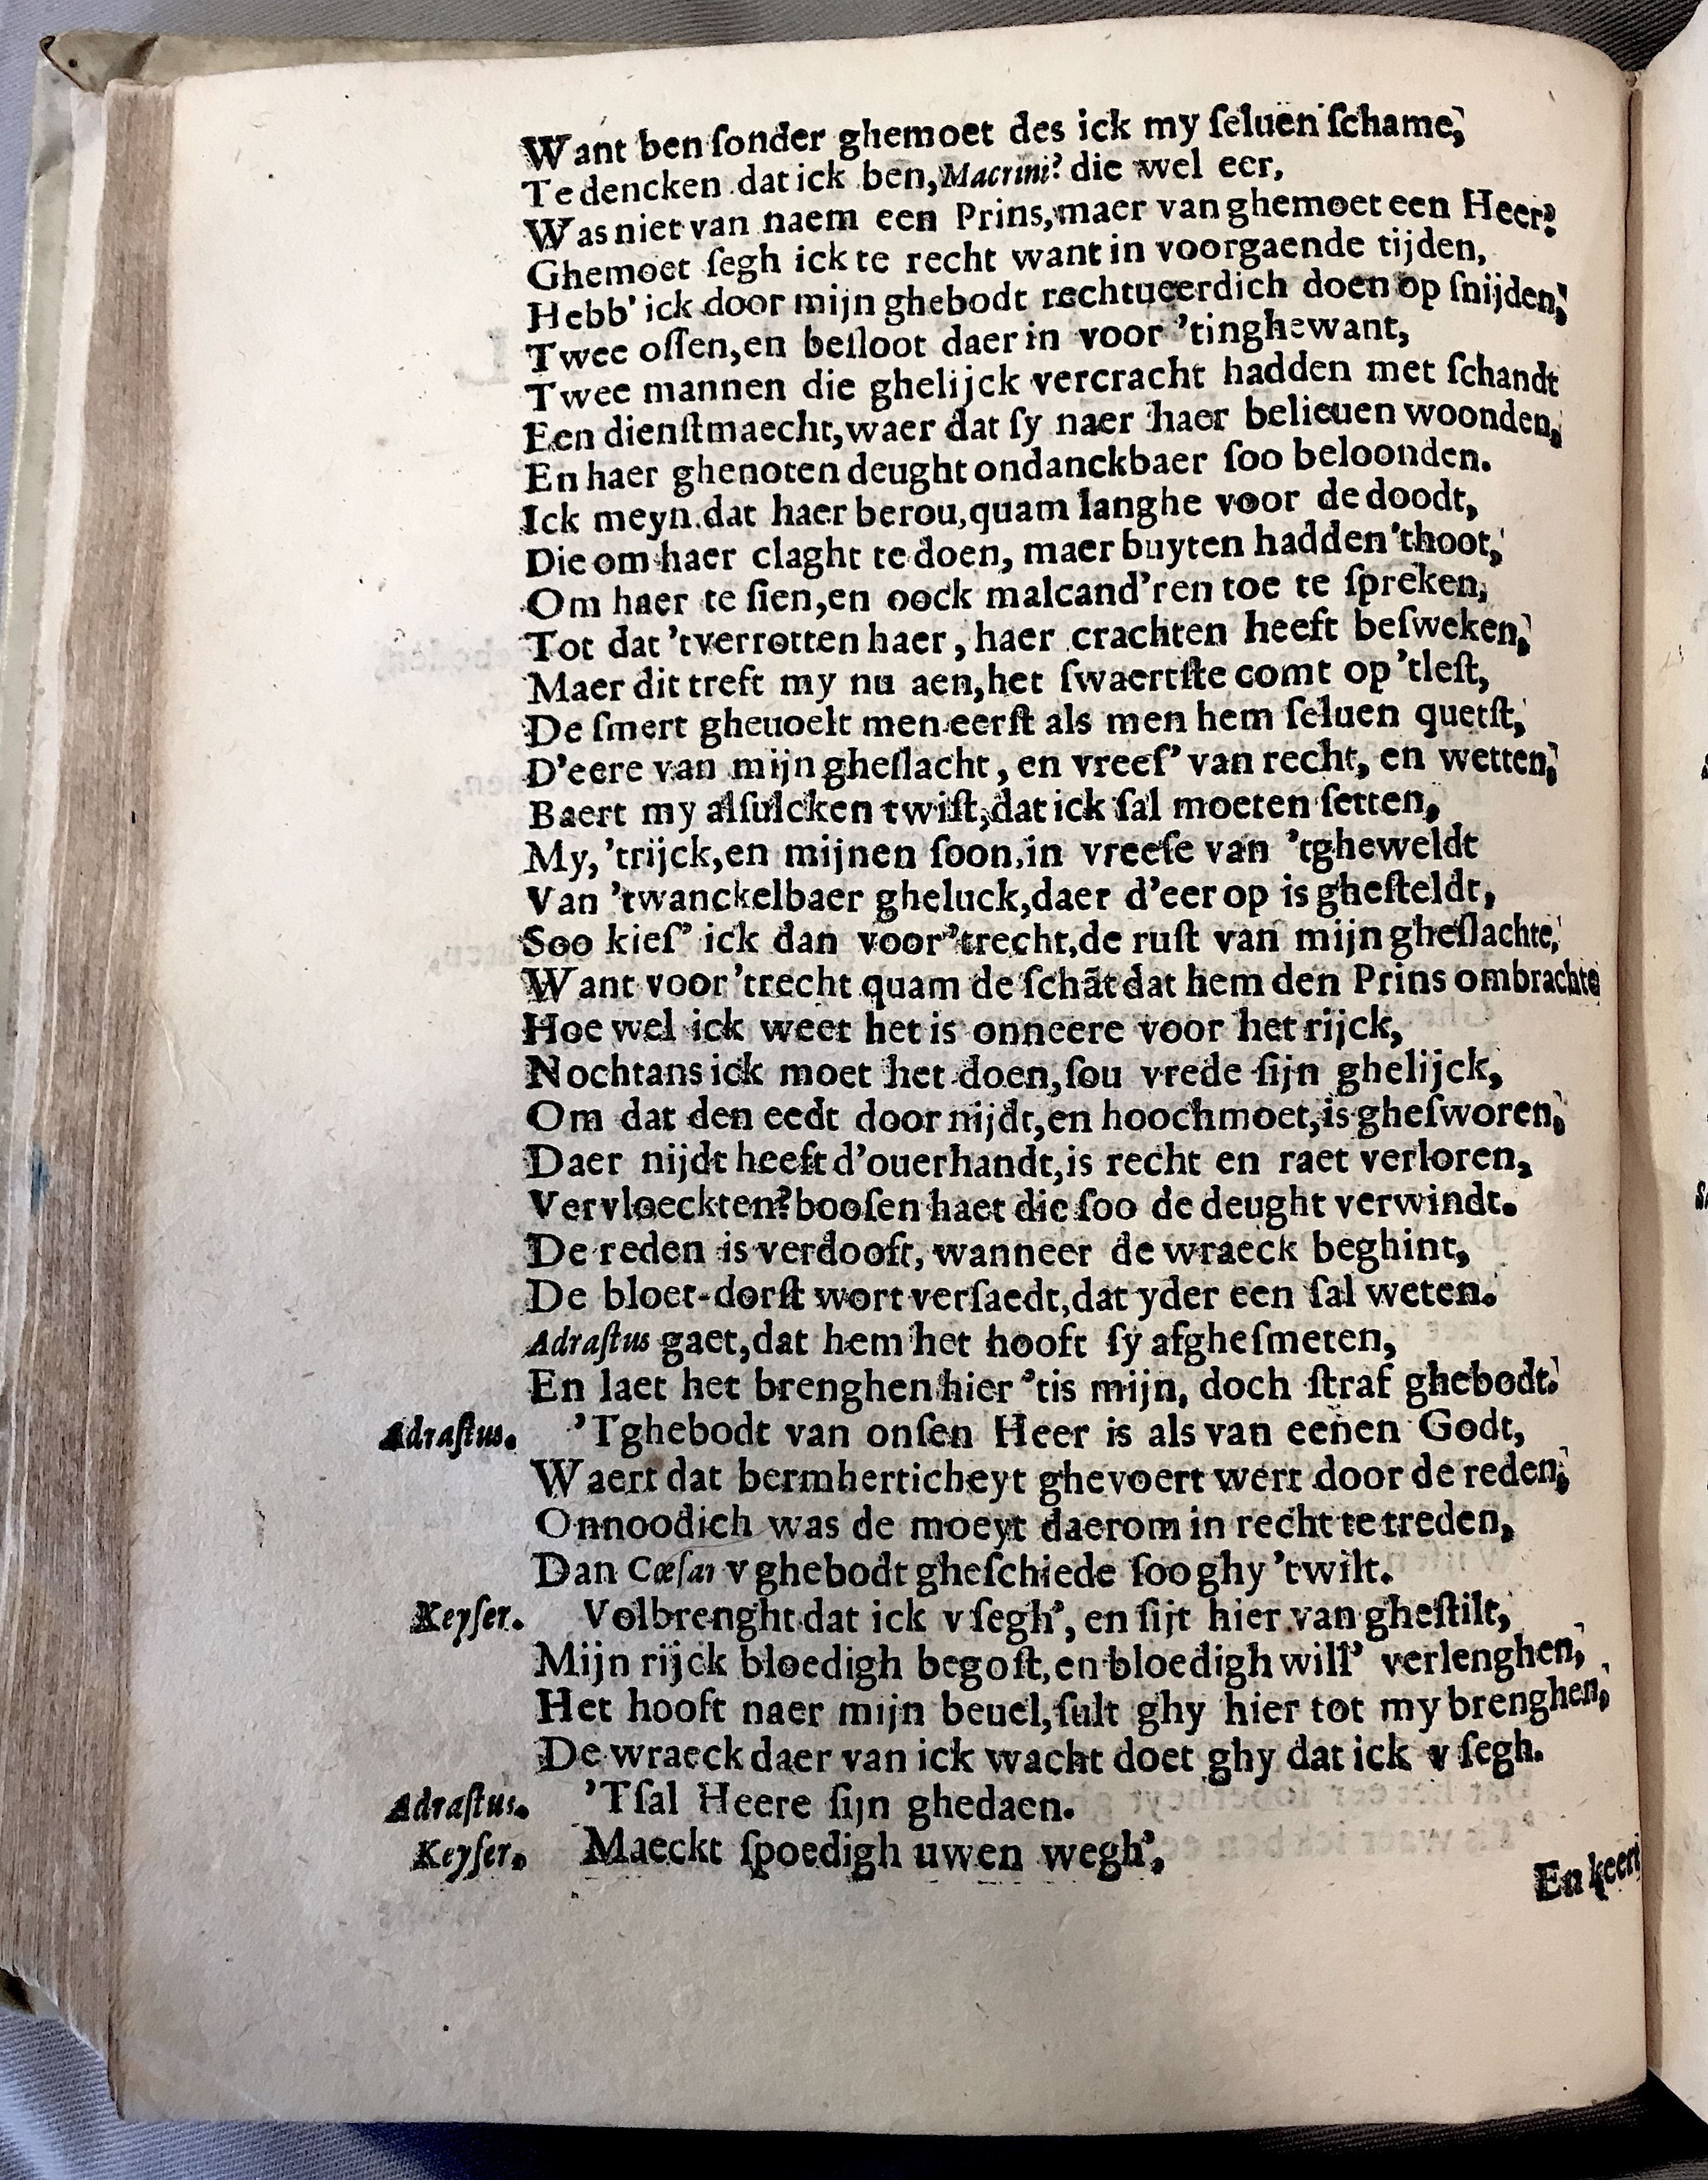 Want ben ſonder ghemoet des ick my ſeluen ſchame,
Te dencken dat ick ben, Macrini? die wel eer,
Was niet van naem een Prins, maer van ghemoet een Heer?
Ghemoet ſegh ick te recht want in voorgaende tijden,
Hebb' ick door mijn ghebodt rechtueerdich doen op ſnijden,
Twee oſſen, en beſloot daer in voor 'tinghewant,
Twee mannen die ghelijck vercracht hadden met ſchandt
Een dienſtmaecht, waer dat ſy naer haer belieuen woonden,
En haer ghenoten deught ondanckbaer ſoo beloonden.
Ick meyn dat haer berou, quam langhe voor de doodt,
Die om haer claght te doen, maer buyten hadden 'thoot,
Om haer te ſien, en oock malcand'ren toe te ſpreken,
Tot dat 'tverrotten haer, haer crachten heeft beſweken,
Maer dit treft my nu aen, het ſwaertſte comt op 'tleſt,
De ſmert gheuoelt men eerſt als men hem ſeluen quetſt,
D'eere van mijn gheſlacht, en vreeſ' van recht, en wetten,
Baert my alſulcken twiſt, dat ick ſal moeten ſetten,
My, 'trijck, en mijnen ſoon, in vreeſe van 'tgheweldt
Van 'twanckelbaer gheluck, daer d'eer op is gheſteldt,
Soo kieſ' ick dan voor 'trecht, de ruſt van mijn gheſlachte,
Want voor 'trecht quam de ſchāt dat hem den Prins ombrachte
Hoe wel ick weet het is onneere voor het rijck,
Nochtans ick moet het doen, ſou vrede ſijn ghelijck,
Om dat den eedt door nijdt, en hoochmoet, is gheſworen,
Daer nijdt heeft d'ouerhandt, is recht en raet verloren,
Vervloeckten? booſen haet die ſoo de deught verwindt.
De reden is verdooft, wanneer de wraeck beghint,
De bloet-dorſt wort verſaedt, dat yder een ſal weten.
Adraſtus gaet, dat hem het hooft ſy afgheſmeten,
En laet het brenghen hier 'tis mijn, doch ſtraf ghebodt.
Adraſtus. 'Tghebodt van onſen Heer is als van eenen Godt,
Waert dat bermherticheyt ghevoert wert door de reden,
Onnoodich was de moeyt daerom in recht te treden,
Dan Cæſar v ghebodt gheſchiede ſoo ghy 'twilt.
Keyſer. Volbrenght dat ick v ſegh', en ſijt hier van gheſtilt,
Mijn rijck bloedigh begoſt, en bloedigh will' verlenghen,
Het hooft naer mijn beuel, ſult ghy hier tot my brenghen,
De wraeck daer van ick wacht doet ghy dat ick v ſegh.
Adraſtus. 'Tſal Heere ſijn ghedaen.
Keyſer. Maeckt ſpoedigh uwen wegh',
En keert